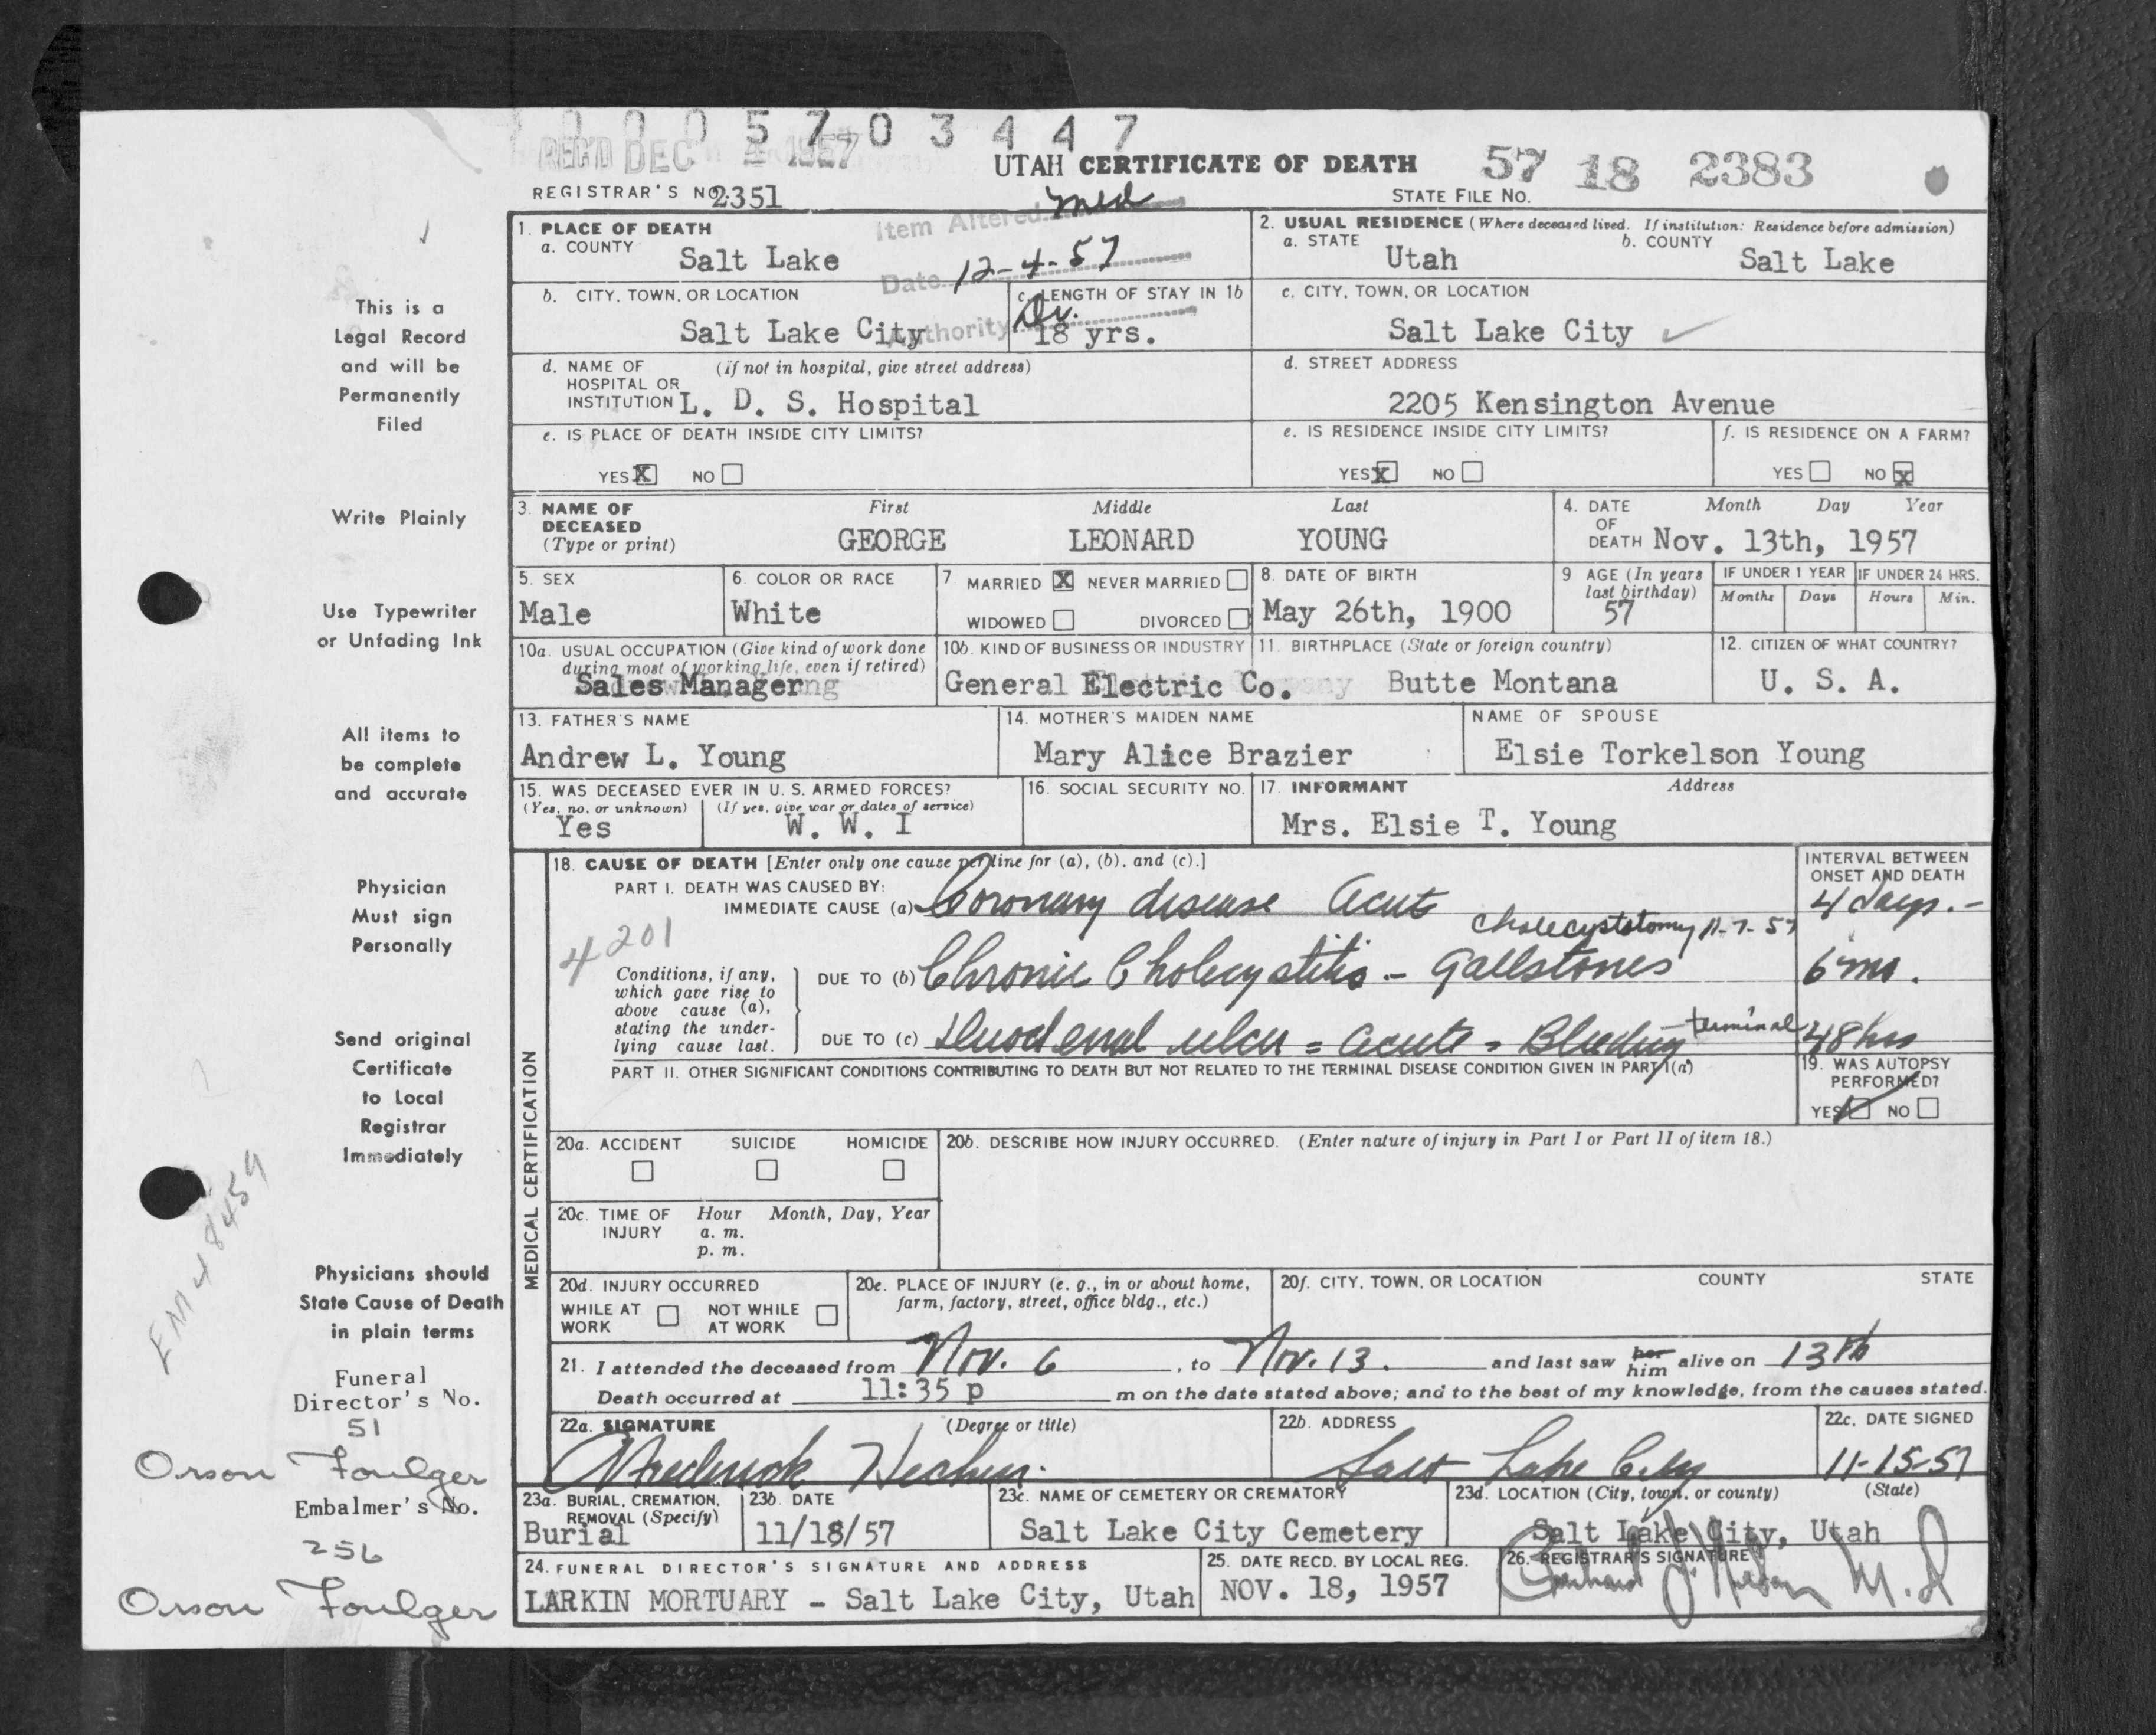 5 7 0 3 4 4 7
REC'D DEC 1957
UTAH CERTIFICATE OF DEATH 57 18 2383
REGISTRAR'S NO. 2351 STATE FILE NO.
Item Altered Med
Date 12-4-57
Authority Dr.
1. PLACE OF DEATH
a. COUNTY Salt Lake
2. USUAL RESIDENCE (Where deceased lived. If institution: Residence before admission)
a. STATE Utah b. COUNTY Salt Lake
b. CITY, TOWN, OR LOCATION Salt Lake City
c. LENGTH OF STAY IN 1b 18 yrs.
c. CITY, TOWN, OR LOCATION Salt Lake City
d. NAME OF HOSPITAL OR INSTITUTION (if not in hospital, give street address)
L. D. S. Hospital
d. STREET ADDRESS
2205 Kensington Avenue
e. IS PLACE OF DEATH INSIDE CITY LIMITS?
YES X NO
e. IS RESIDENCE INSIDE CITY LIMITS?
YES X NO
f. IS RESIDENCE ON A FARM?
YES NO X
3. NAME OF DECEASED (Type or print)
First Middle Last
GEORGE LEONARD YOUNG
4. DATE OF DEATH Month Day Year
Nov. 13th, 1957
5. SEX
Male
6. COLOR OR RACE
White
7 MARRIED X NEVER MARRIED
WIDOWED DIVORCED
8. DATE OF BIRTH
May 26th, 1900
9 AGE (In years last birthday)
57
IF UNDER 1 YEAR IF UNDER 24 HRS.
Months Days Hours Min.
10a. USUAL OCCUPATION (Give kind of work done during most of working life, even if retired)
Sales Manager
10b. KIND OF BUSINESS OR INDUSTRY
General Electric Co.
11. BIRTHPLACE (State or foreign country)
Butte Montana
12. CITIZEN OF WHAT COUNTRY?
U. S. A.
13. FATHER'S NAME
Andrew L. Young
14. MOTHER'S MAIDEN NAME
Mary Alice Brazier
NAME OF SPOUSE
Elsie Torkelson Young
15. WAS DECEASED EVER IN U. S. ARMED FORCES?
(Yes, no, or unknown) (If yes, give war or dates of service)
Yes W. W. I
16. SOCIAL SECURITY NO.
17. INFORMANT Address
Mrs. Elsie T. Young
MEDICAL CERTIFICATION
18. CAUSE OF DEATH [Enter only one cause per line for (a), (b), and (c).]
INTERVAL BETWEEN ONSET AND DEATH
PART I. DEATH WAS CAUSED BY:
IMMEDIATE CAUSE (a) Coronary disease Acute 4 days.-
4201
Cholecystotomy 11-7-57
Conditions, if any, which gave rise to above cause (a), stating the underlying cause last.
DUE TO (b) Chronic Cholecystitis - Gallstones 6 mo.
DUE TO (c) Duodenal ulcer = Acute - Bleeding - terminal 48 hrs
PART II. OTHER SIGNIFICANT CONDITIONS CONTRIBUTING TO DEATH BUT NOT RELATED TO THE TERMINAL DISEASE CONDITION GIVEN IN PART I(a)
19. WAS AUTOPSY PERFORMED?
YES NO
20a. ACCIDENT SUICIDE HOMICIDE
20b. DESCRIBE HOW INJURY OCCURRED. (Enter nature of injury in Part I or Part II of item 18.)
20c. TIME OF INJURY Hour Month, Day, Year
a. m.
p. m.
20d. INJURY OCCURRED
WHILE AT WORK NOT WHILE AT WORK
20e. PLACE OF INJURY (e. g., in or about home, farm, factory, street, office bldg., etc.)
20f. CITY, TOWN, OR LOCATION COUNTY STATE
21. I attended the deceased from Nov. 6, to Nov. 13. and last saw her him alive on 13th
Death occurred at 11:35 p m on the date stated above; and to the best of my knowledge, from the causes stated.
22a. SIGNATURE (Degree or title)
Frederick
22b. ADDRESS
Salt Lake City
22c. DATE SIGNED
11-15-57
23a. BURIAL, CREMATION, REMOVAL (Specify)
Burial
23b. DATE
11/18/57
23c. NAME OF CEMETERY OR CREMATORY
Salt Lake City Cemetery
23d. LOCATION (City, town, or county) (State)
Salt Lake City, Utah
24. FUNERAL DIRECTOR'S SIGNATURE AND ADDRESS
LARKIN MORTUARY - Salt Lake City, Utah
25. DATE RECD. BY LOCAL REG.
NOV. 18, 1957
26. REGISTRAR'S SIGNATURE
M.D
This is a
Legal Record
and will be
Permanently
Filed
Write Plainly
Use Typewriter
or Unfading Ink
All items to
be complete
and accurate
Physician
Must sign
Personally
Send original
Certificate
to Local
Registrar
Immediately
EM 48459
Physicians should
State Cause of Death
in plain terms
Funeral
Director's No.
51
Orson Foulger
Embalmer's No.
256
Orson Foulger